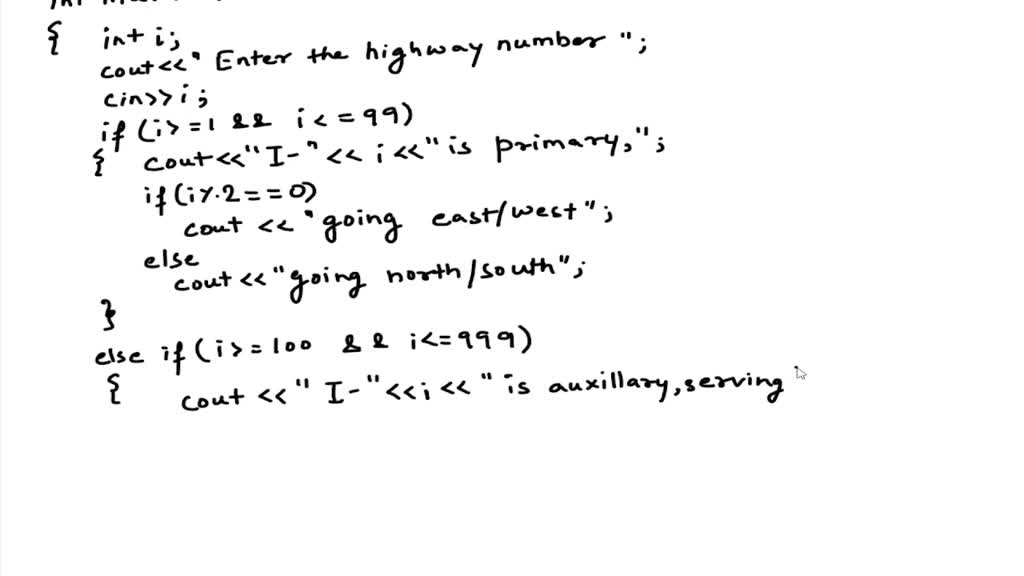 { int i;
cout<<"Enter the highway number ";
cin>>i;
if (i>=1 && i<=99)
{ cout<<"I-"<< i <<"is primary,";
if(i%2==0)
cout <<"going east/west";
else
cout <<"going north/south";
}
else if (i>=100 && i<=999)
{ cout <<" I-"<<i<< "is auxillary,serving